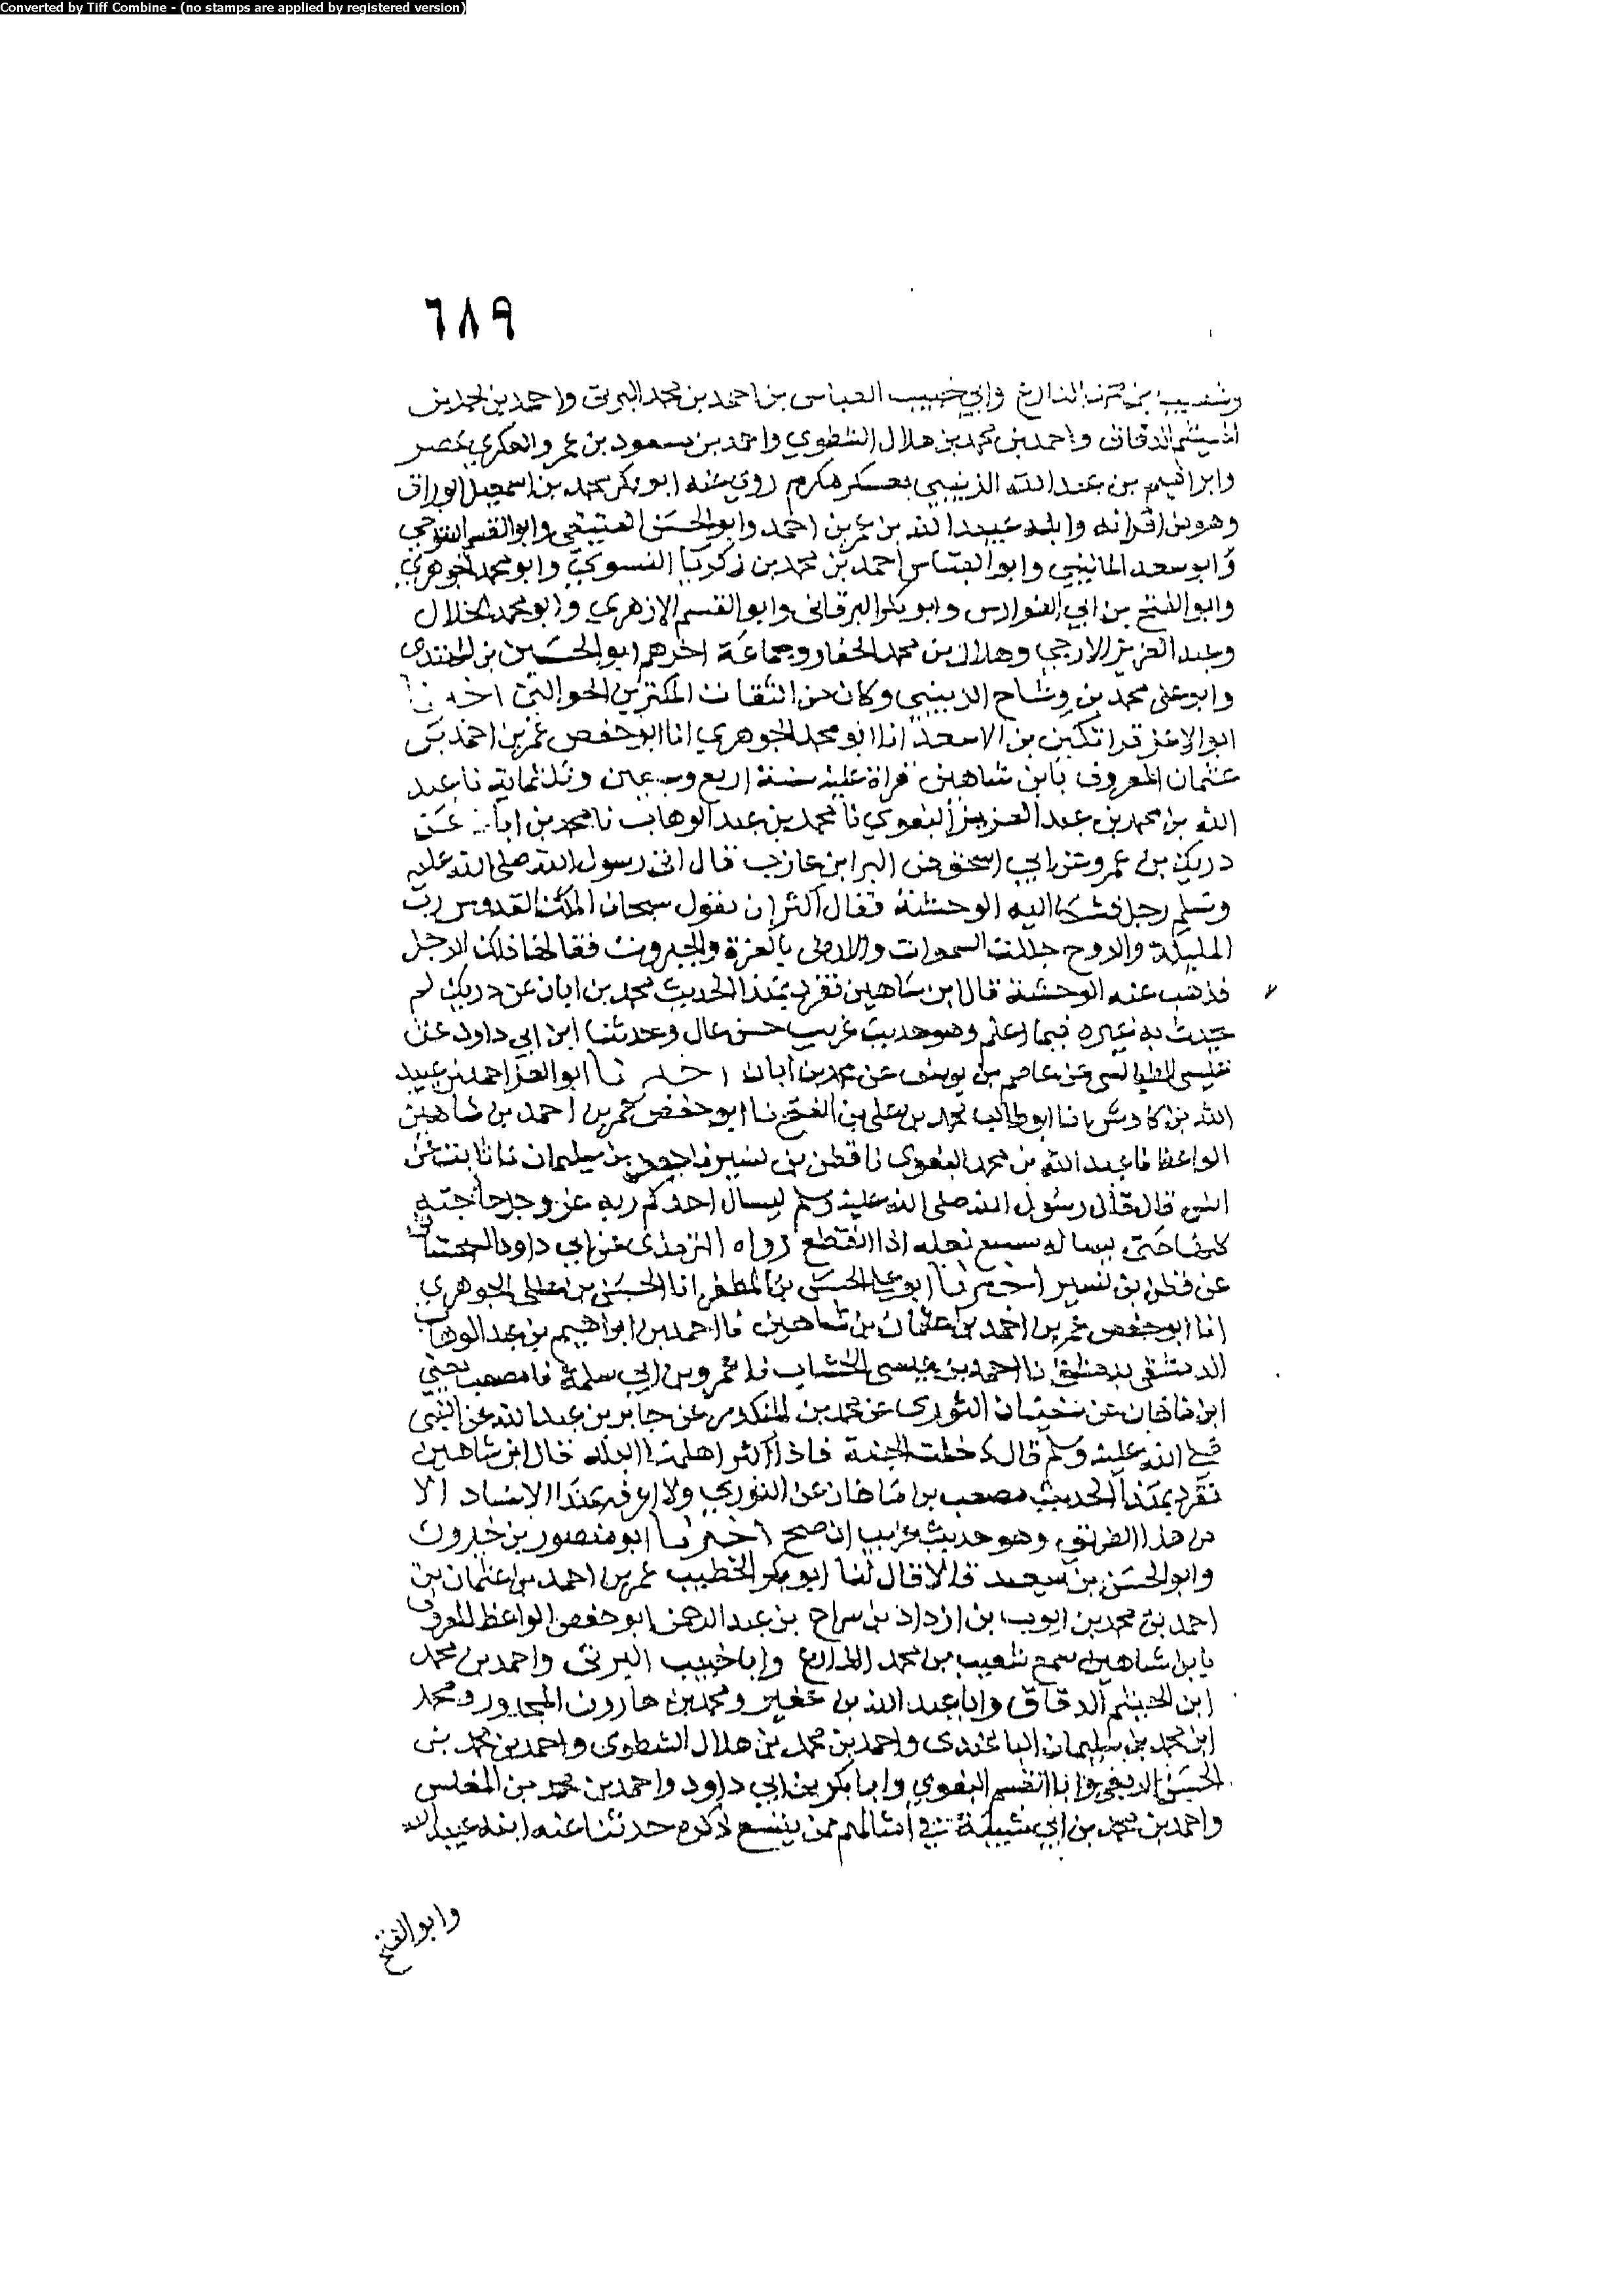 Converted by Tiff Combine - (no stamps are applied by registered version)
٦٨٩
وشعيب بن محمد الذارع وابي خبيب العباس بن احمد بن محمد البرتي واحمد بن محمد بن
الهيثم الدقاق واحمد بن محمد بن هلال الشطوي واحمد بن مسعود بن عمرو العكري بمصر
وابراهيم بن عبد الله الزينبي بعسكر مكرم روى عنه ابو بكر محمد بن اسمعيل الوراق
وهو من اقرانه وابنه عبيد الله بن عمر بن احمد وابو الحسن العتيقي وابو القسم التنوخي
وابو سعد الماليني وابو العباس احمد بن محمد بن زكريا النسوي وابو محمد الجوهري
وابو الفتح بن ابي الفوارس وابو بكر البرقاني وابو القسم الازهري وابو محمد الخلال
وعبد العزيز الازجي وهلال بن محمد الحفار وجماعة اخرهم ابو الحسين بن المهتدى
وابو على محمد بن وشاح الزينبي وكان من الثقات المكثرين الجوالين اخبرنا
ابو الاعز قراتكين بن الاسعد انا ابو محمد الجوهري انا ابو حفص عمر بن احمد بن
عثمان المعروف بابن شاهين قراة عليه سنة اربع وسبعين وثلثماية نا عبد
الله بن محمد بن عبد العزيز البغوي نا محمد بن عبد الوهاب نا محمد بن ابان عن
دريك بن عمرو عن ابي اسحق عن البرا بن عازب قال اتى رسول الله صلى الله عليه
وسلم رجل فشكا اليه الوحشة فقال اكثر ان تقول سبحان الملك القدوس رب
المليكة والروح جللت السموات والارض بالعزة والجبروت فقالها ذلك الرجل
فذهب عنه الوحشة قال ابن شاهين تفرد بهذا الحديث محمد بن ابان عن دريك لم
يحدث به غيره فيما اعلم وهو حديث غريب حسن عال وحدثنا ابن ابي داود عن
عيسى الطيالسي عن عاصم بن يوسف عن محمد بن ابان اخبرنا ابو العز احمد بن عبيد
الله بن كادش انا ابو طالب محمد بن على بن الفتح نا ابو حفص عمر بن احمد بن شاهين
الواعظ نا عبد الله بن محمد البغوى نا قطن بن نسير نا جعفر بن سليمان نا ثابت عن
انس قال قال رسول الله صلى الله عليه وسلم ليسال احدكم ربه عز وجل حاجته
كلها حتى يساله شسع نعله اذا انقطع رواه الترمذى عن ابي داود السجستاني
عن قطن بن نسير اخبرنا ابو على الحسن بن المظفر انا الحسن بن على الجوهري
انا ابو حفص عمر بن احمد بن عثمان بن شاهين نا احمد بن ابراهيم بن عبد الوهاب
الدمشقى بدمشق نا احمد بن عيسى الخشاب نا عمرو بن ابي سلمة نا مصعب يعني
ابن ماهان عن سفيان الثورى عن محمد بن المنكدر عن جابر بن عبد الله عن النبي
صلى الله عليه وسلم قال دخلت الجنة فاذا اكثر اهلها البله قال ابن شاهين
تفرد بهذا الحديث مصعب بن ماهان عن الثوري ولا اعرفه بهذا الاسناد الا
من هذا الطريق وهو حديث غريب ان صح اخبرنا ابو منصور بن خيرون
وابو الحسن بن سعيد قالا قال لنا ابو بكر الخطيب عمر بن احمد بن عثمان بن
احمد بن محمد بن ايوب بن ازداد بن سراح بن عبد الرحمن ابو حفص الواعظ المعروف
بابن شاهين سمع شعيب بن محمد الذارع وابا خبيب البرتى واحمد بن محمد
ابن الهيثم الدقاق وابا عبد الله بن عفير ومحمد بن هارون المجدر ومحمد
ابن محمد بن سليمان الباغندى واحمد بن محمد بن هلال الشطوى واحمد بن محمد بن
الحسن الربعي وابا القسم البغوي وابا بكر بن ابي داود واحمد بن محمد بن المغلس
واحمد بن محمد بن ابي شيبة في امثالهم ممن يتسع ذكره حدثنا عنه ابنه عبيد الله
وابو الفتح